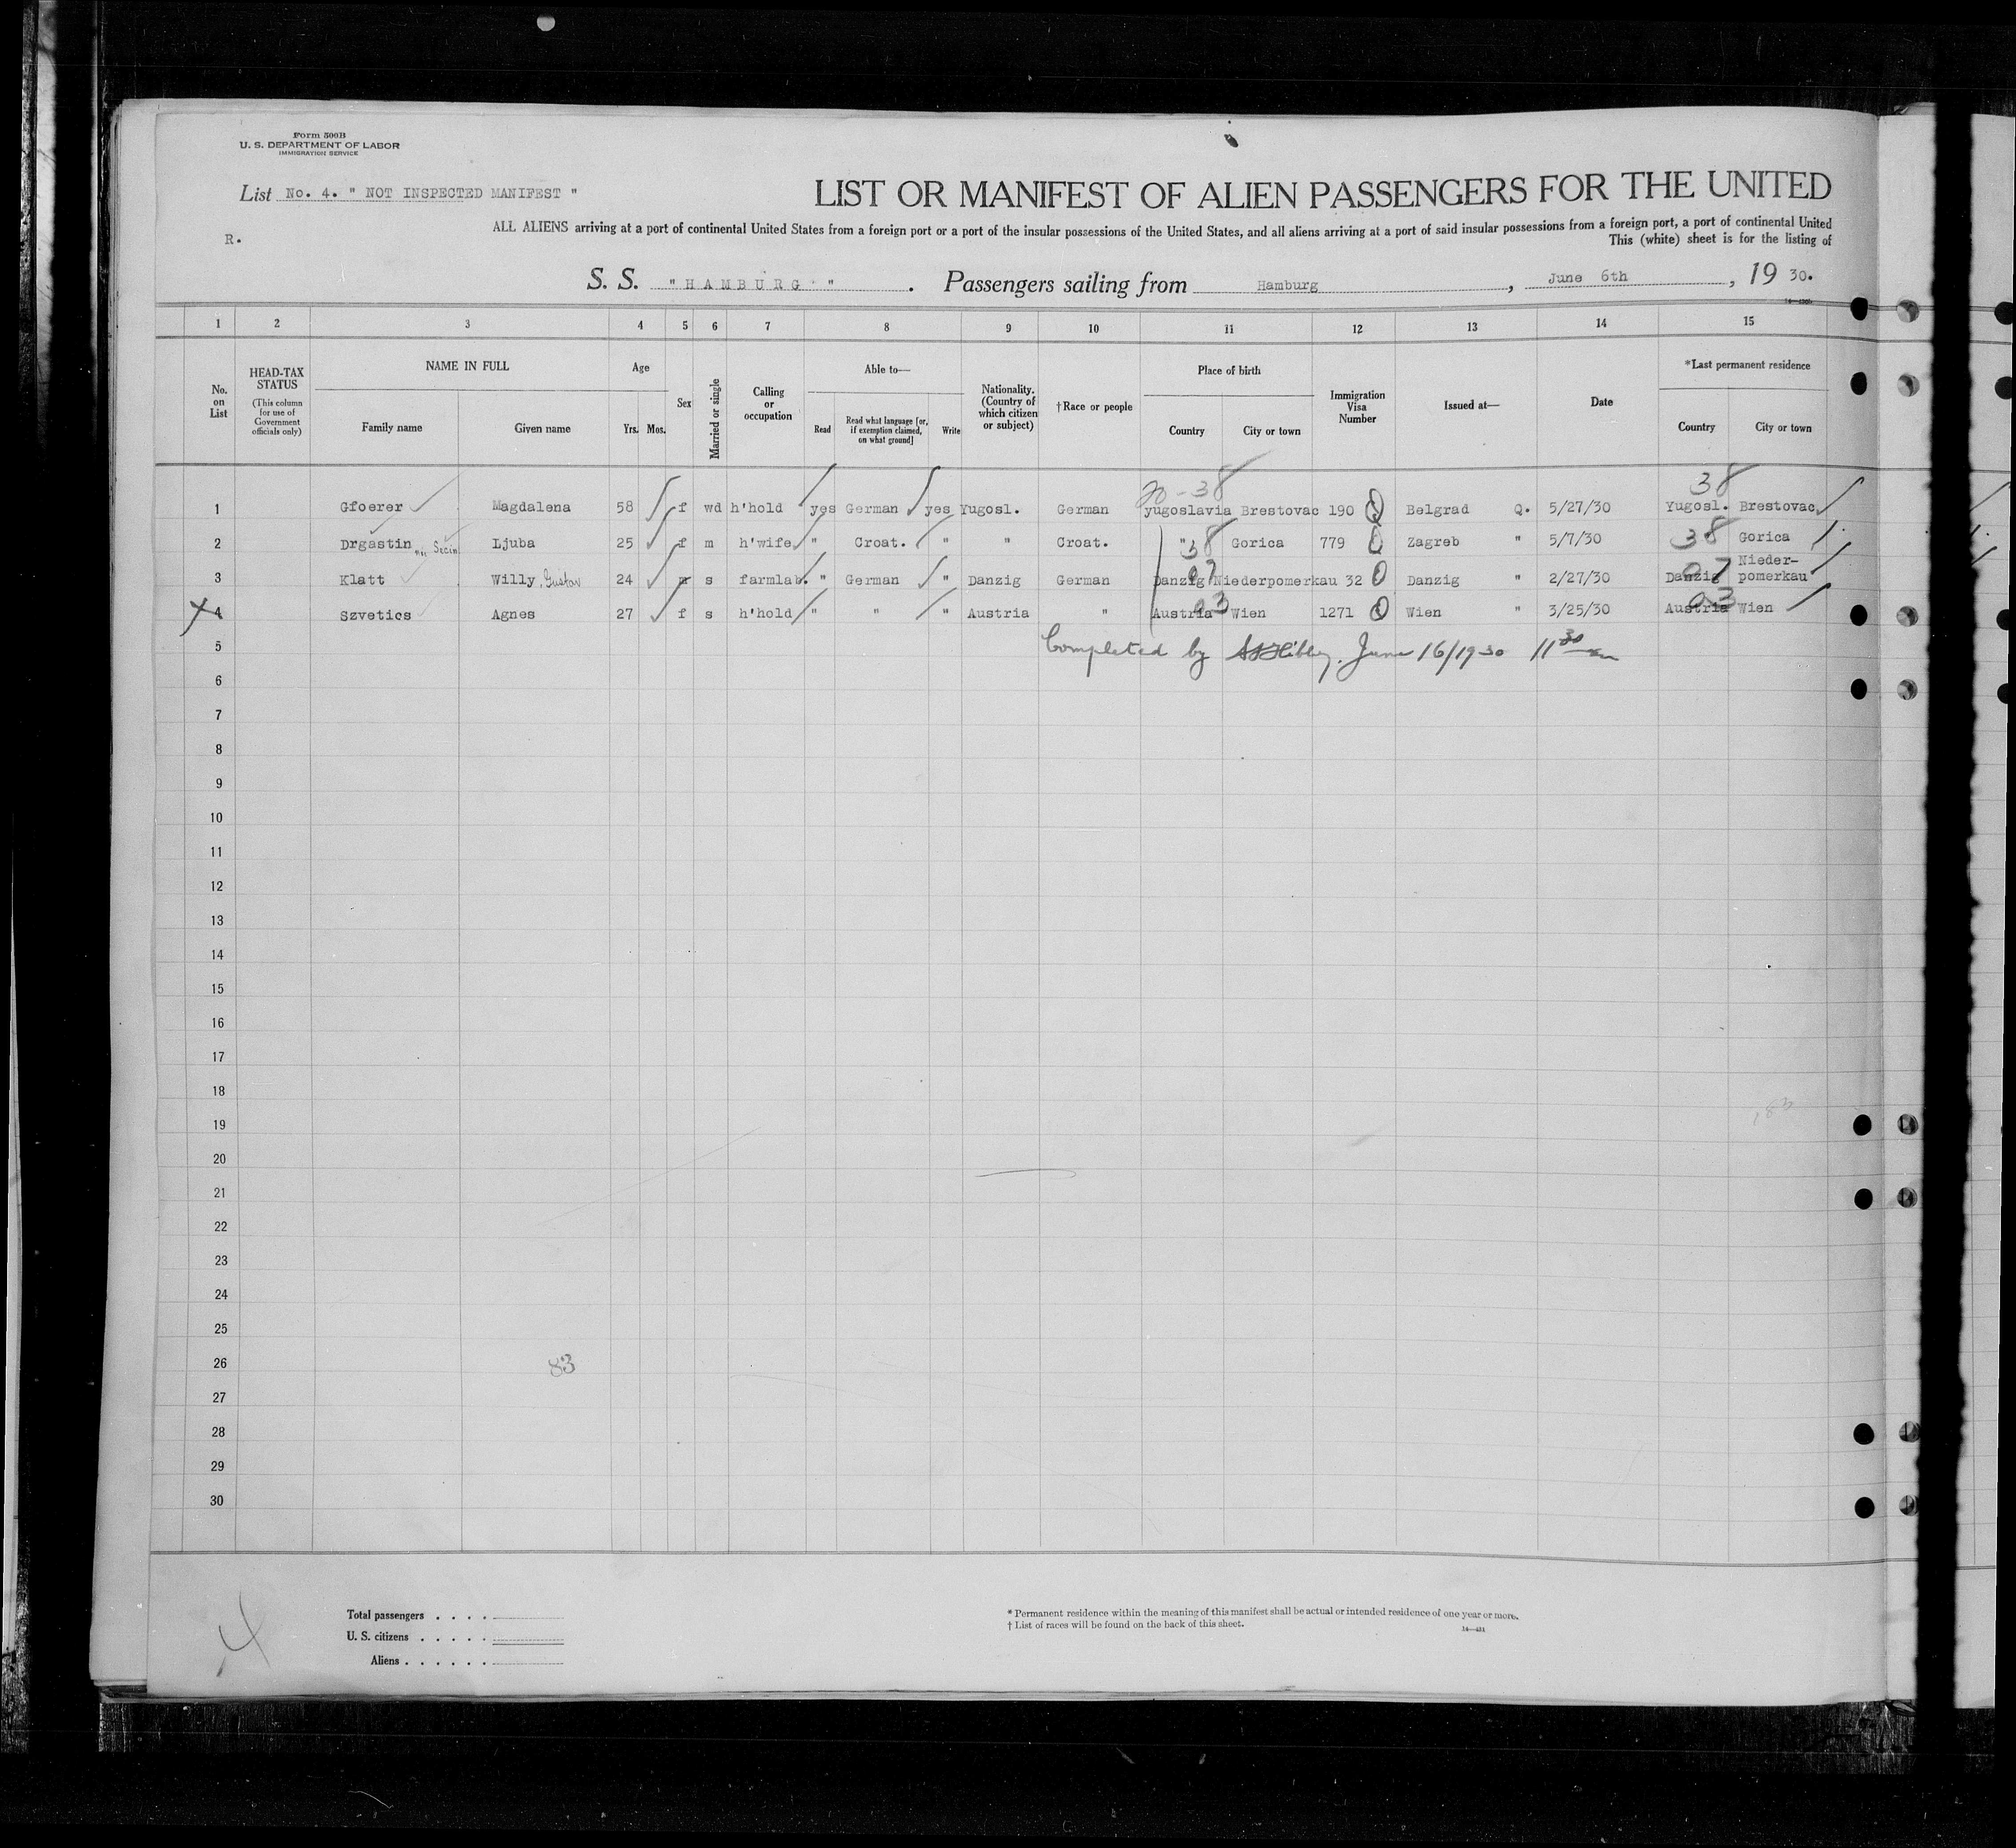 Form 500B
U. S. DEPARTMENT OF LABOR
IMMIGRATION SERVICE
List No. 4. " NOT INSPECTED MANIFEST "
R.
LIST OR MANIFEST OF ALIEN PASSENGERS FOR THE UNITED
ALL ALIENS arriving at a port of continental United States from a foreign port or a port of the insular possessions of the United States, and all aliens arriving at a port of said insular possessions from a foreign port, a port of continental United
This (white) sheet is for the listing of
S. S. " HAMBURG " . Passengers sailing from Hamburg , June 6th , 19 30.
1 2 3 4 5 6 7 8 9 10 11 12 13 14 15
No. on List
HEAD-TAX STATUS
(This column for use of Government officials only)
NAME IN FULL
Family name Given name
Age
Yrs. Mos.
Sex
Married or single
Calling or occupation
Able to—
Read
Read what language [or, if exemption claimed, on what ground]
Write
Nationality. (Country of which citizen or subject)
†Race or people
Place of birth
Country City or town
Immigration Visa Number
Issued at—
Date
*Last permanent residence
Country City or town
38 38
1 Gfoerer Magdalena 58 f wd h'hold yes German yes Yugosl. German yugoslavia Brestovac 190 Belgrad Q. 5/27/30 Yugosl. Brestovac
2 Drgastin Ljuba 25 f m h'wife " Croat. " " Croat. " 38 Gorica 779 Zagreb " 5/7/30 38 Gorica
3 Klatt Willy, Gustav 24 m s farmlab. " German " Danzig German Danzig 07 Niederpomerkau 32 Danzig " 2/27/30 Danzig 07 Nieder-pomerkau
X 4 Szvetics Agnes 27 f s h'hold " " " Austria " Austria 03 Wien 1271 Wien " 3/25/30 Austria 03 Wien
5 Completed by June 16/1930 11 30
6
7
8
9
10
11
12
13
14
15
16
17
18
19
20
21
22
23
24
25
26 83
27
28
29
30
Total passengers . . . .
U. S. citizens . . . . .
Aliens . . . . . .
* Permanent residence within the meaning of this manifest shall be actual or intended residence of one year or more.
† List of races will be found on the back of this sheet.
14—421